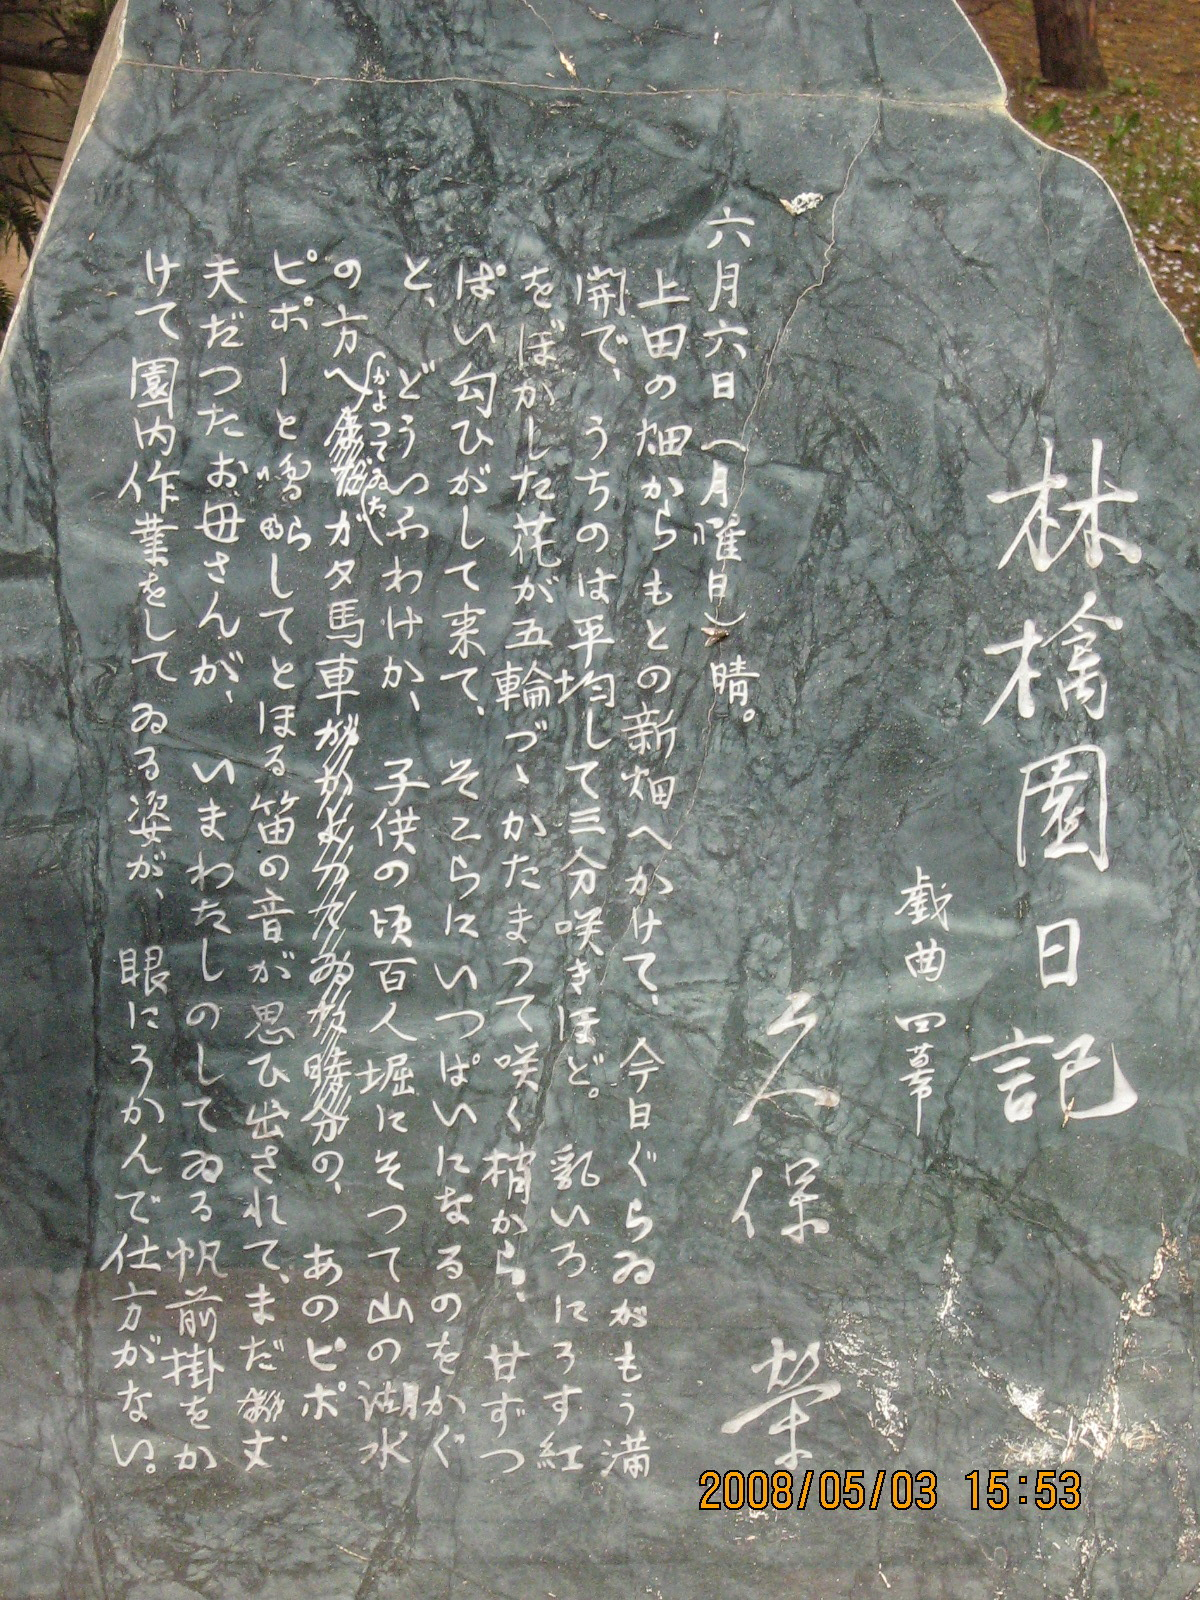 林檎園日記
戯曲四幕
久保栄
六月六日(月曜日)晴。
上田の畑からもとの新畑へかけて、今日ぐらゐがもう満
開で、うちのは平均して三分咲きほど。乳いろにうす紅
をぼかした花が五輪づゝかたまつて咲く梢から、甘ずつ
ぱい匂ひがして来て、そこらにいつぱいになるのをかぐ
と、どういふわけか、子供の頃百人堀にそつて山の湖水
の方へかよつてゐたガタ馬車の、あのピポ
ピポーと鳴らしてとほる笛の音が思ひ出されて、まだ丈
夫だつたお母さんが、いまわたしのしてゐる帆前掛をか
けて園内作業をしてゐる姿が、眼にうかんで仕方がない。
2008/05/03 15:53